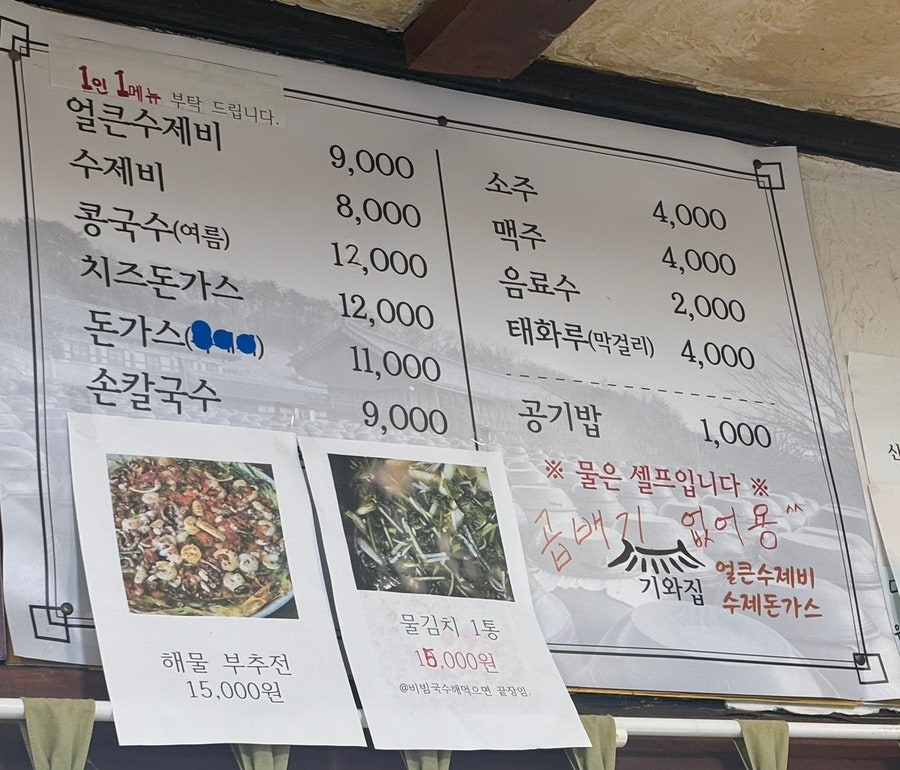 1인 1메뉴 부탁 드립니다.
얼큰수제비 9,000
수제비 8,000
콩국수(여름) 12,000
치즈돈가스 12,000
돈가스 11,000
손칼국수 9,000
소주 4,000
맥주 4,000
음료수 2,000
태화루(막걸리) 4,000
공기밥 1,000
※ 물은 셀프입니다 ※
곱배기 없어용^^
기와집
얼큰수제비
수제돈가스
해물 부추전
15,000원
물김치 1통
15,000원
@비빔국수해먹으면 끝장임.